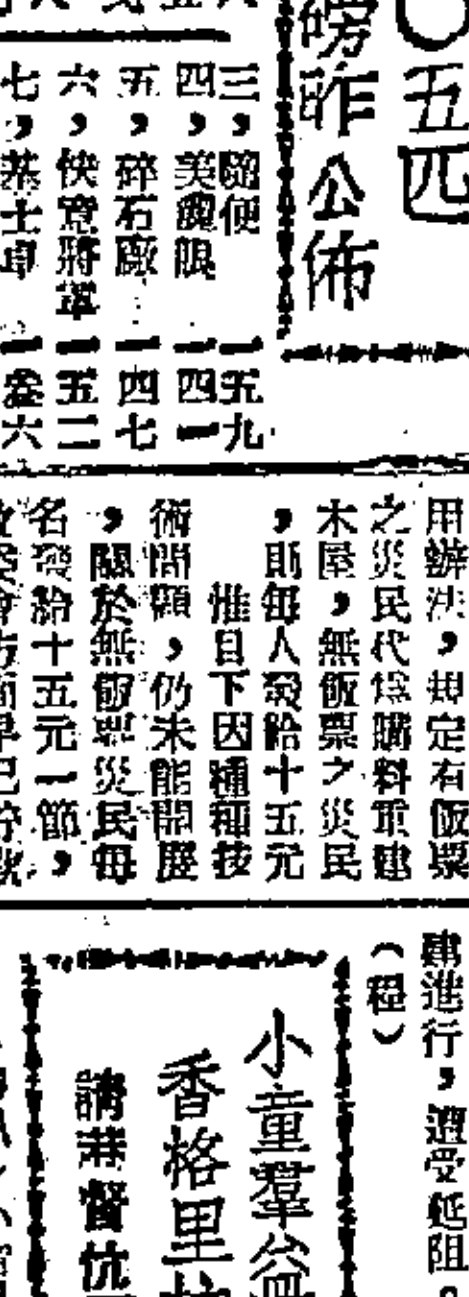 〇五四
榜昨公佈
三，隨便 一五九
四，美魂眼 一四一
五，碎石廠 一四七
六，快意將軍 一五二
七，基士卓
用辦法，規定有飯票
之災民代為購料重建
木屋，無飯票之災民
，則每人發給十五元
惟目下因種種技
術問題，仍未能開展
，關於無飯票災民每
名發給十五元一節，
建進行，遭受延阻。
（程）
小童羣益
香格里拉
請港督伉